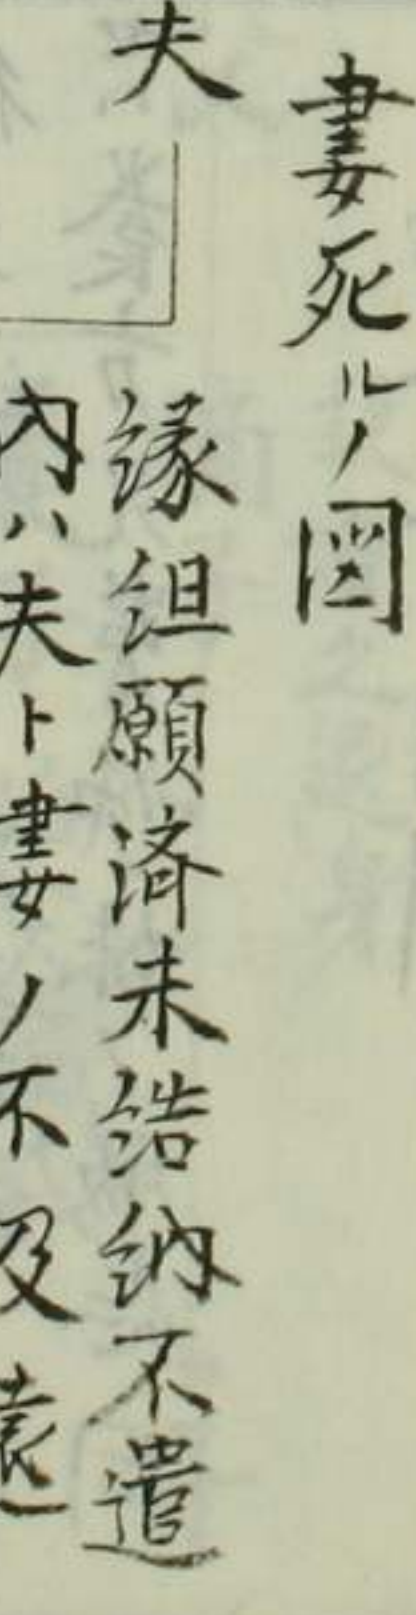 妻死ルノ図
夫
縁組願済未結納不遣
内ハ夫ト妻ノ不及遠